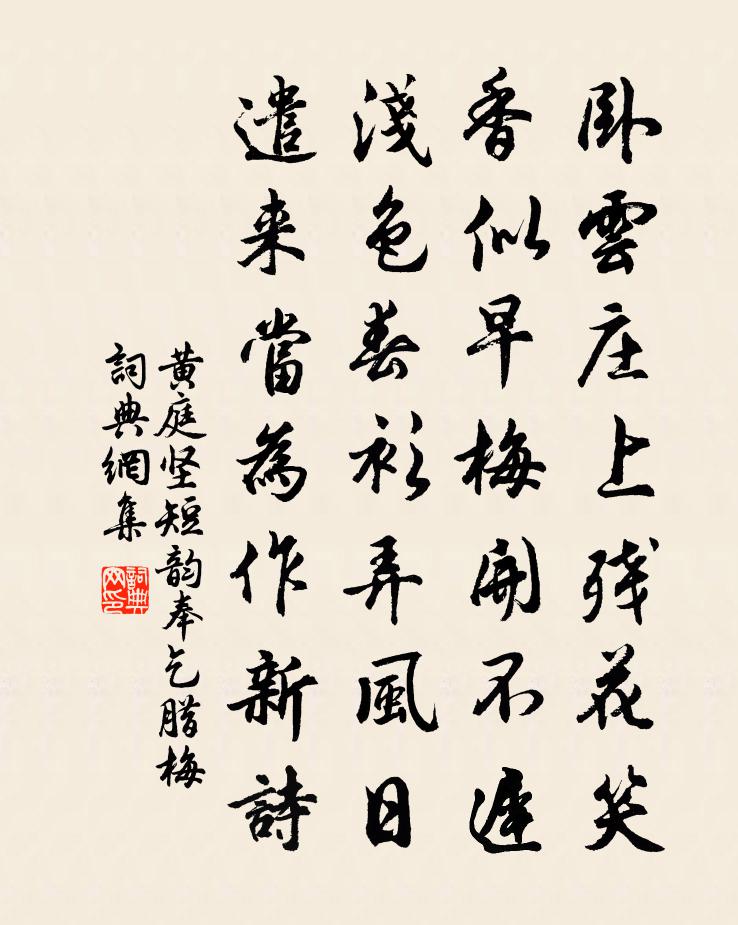 卧雲庄上残花笑
香似早梅開不遲
淺色春衫弄風日
遣来當為作新詩
黄庭坚短韵奉乞腊梅
詞典網集
詞典網印